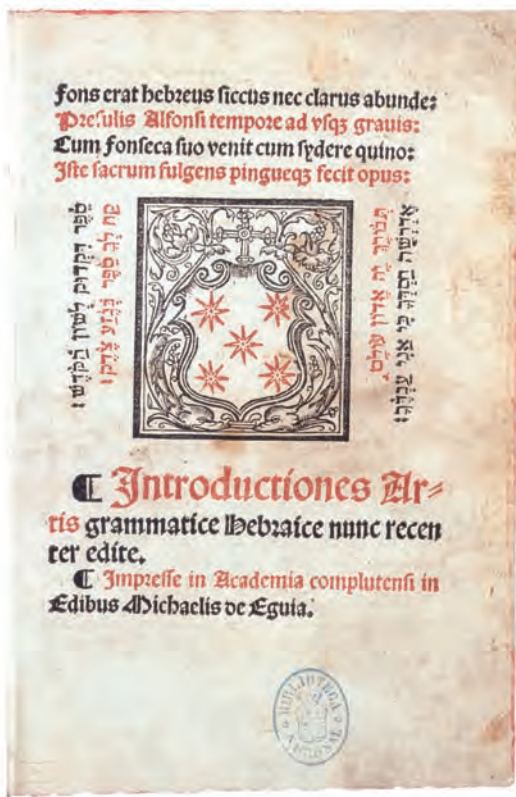 fons erat hebreus ſiccus nec clarus abunde:
Preſulis Alfonſi tempore ad vſqꝫ grauis:
Cum fonſeca ſuo venit cum ſydere quino:
Iſte ſacrum fulgens pingueqꝫ fecit opus:
סֵפֶר דִּקְדּוּק לְשׁוֹן הַקֹּדֶשׁ׃
קַח לְךָ סֵפֶר
יָהּ אֲדוֹן עוֹלָם
כִּי אֲנִי עַבְדְּךָ׃
¶ Introductiones Ar⸗
tis grammatice Hebraice nunc recen
ter edite.
¶ Impreſſe in Academia complutenſi in
Edibus Michaelis de Eguia.
BIBLIOTECA NACIONAL